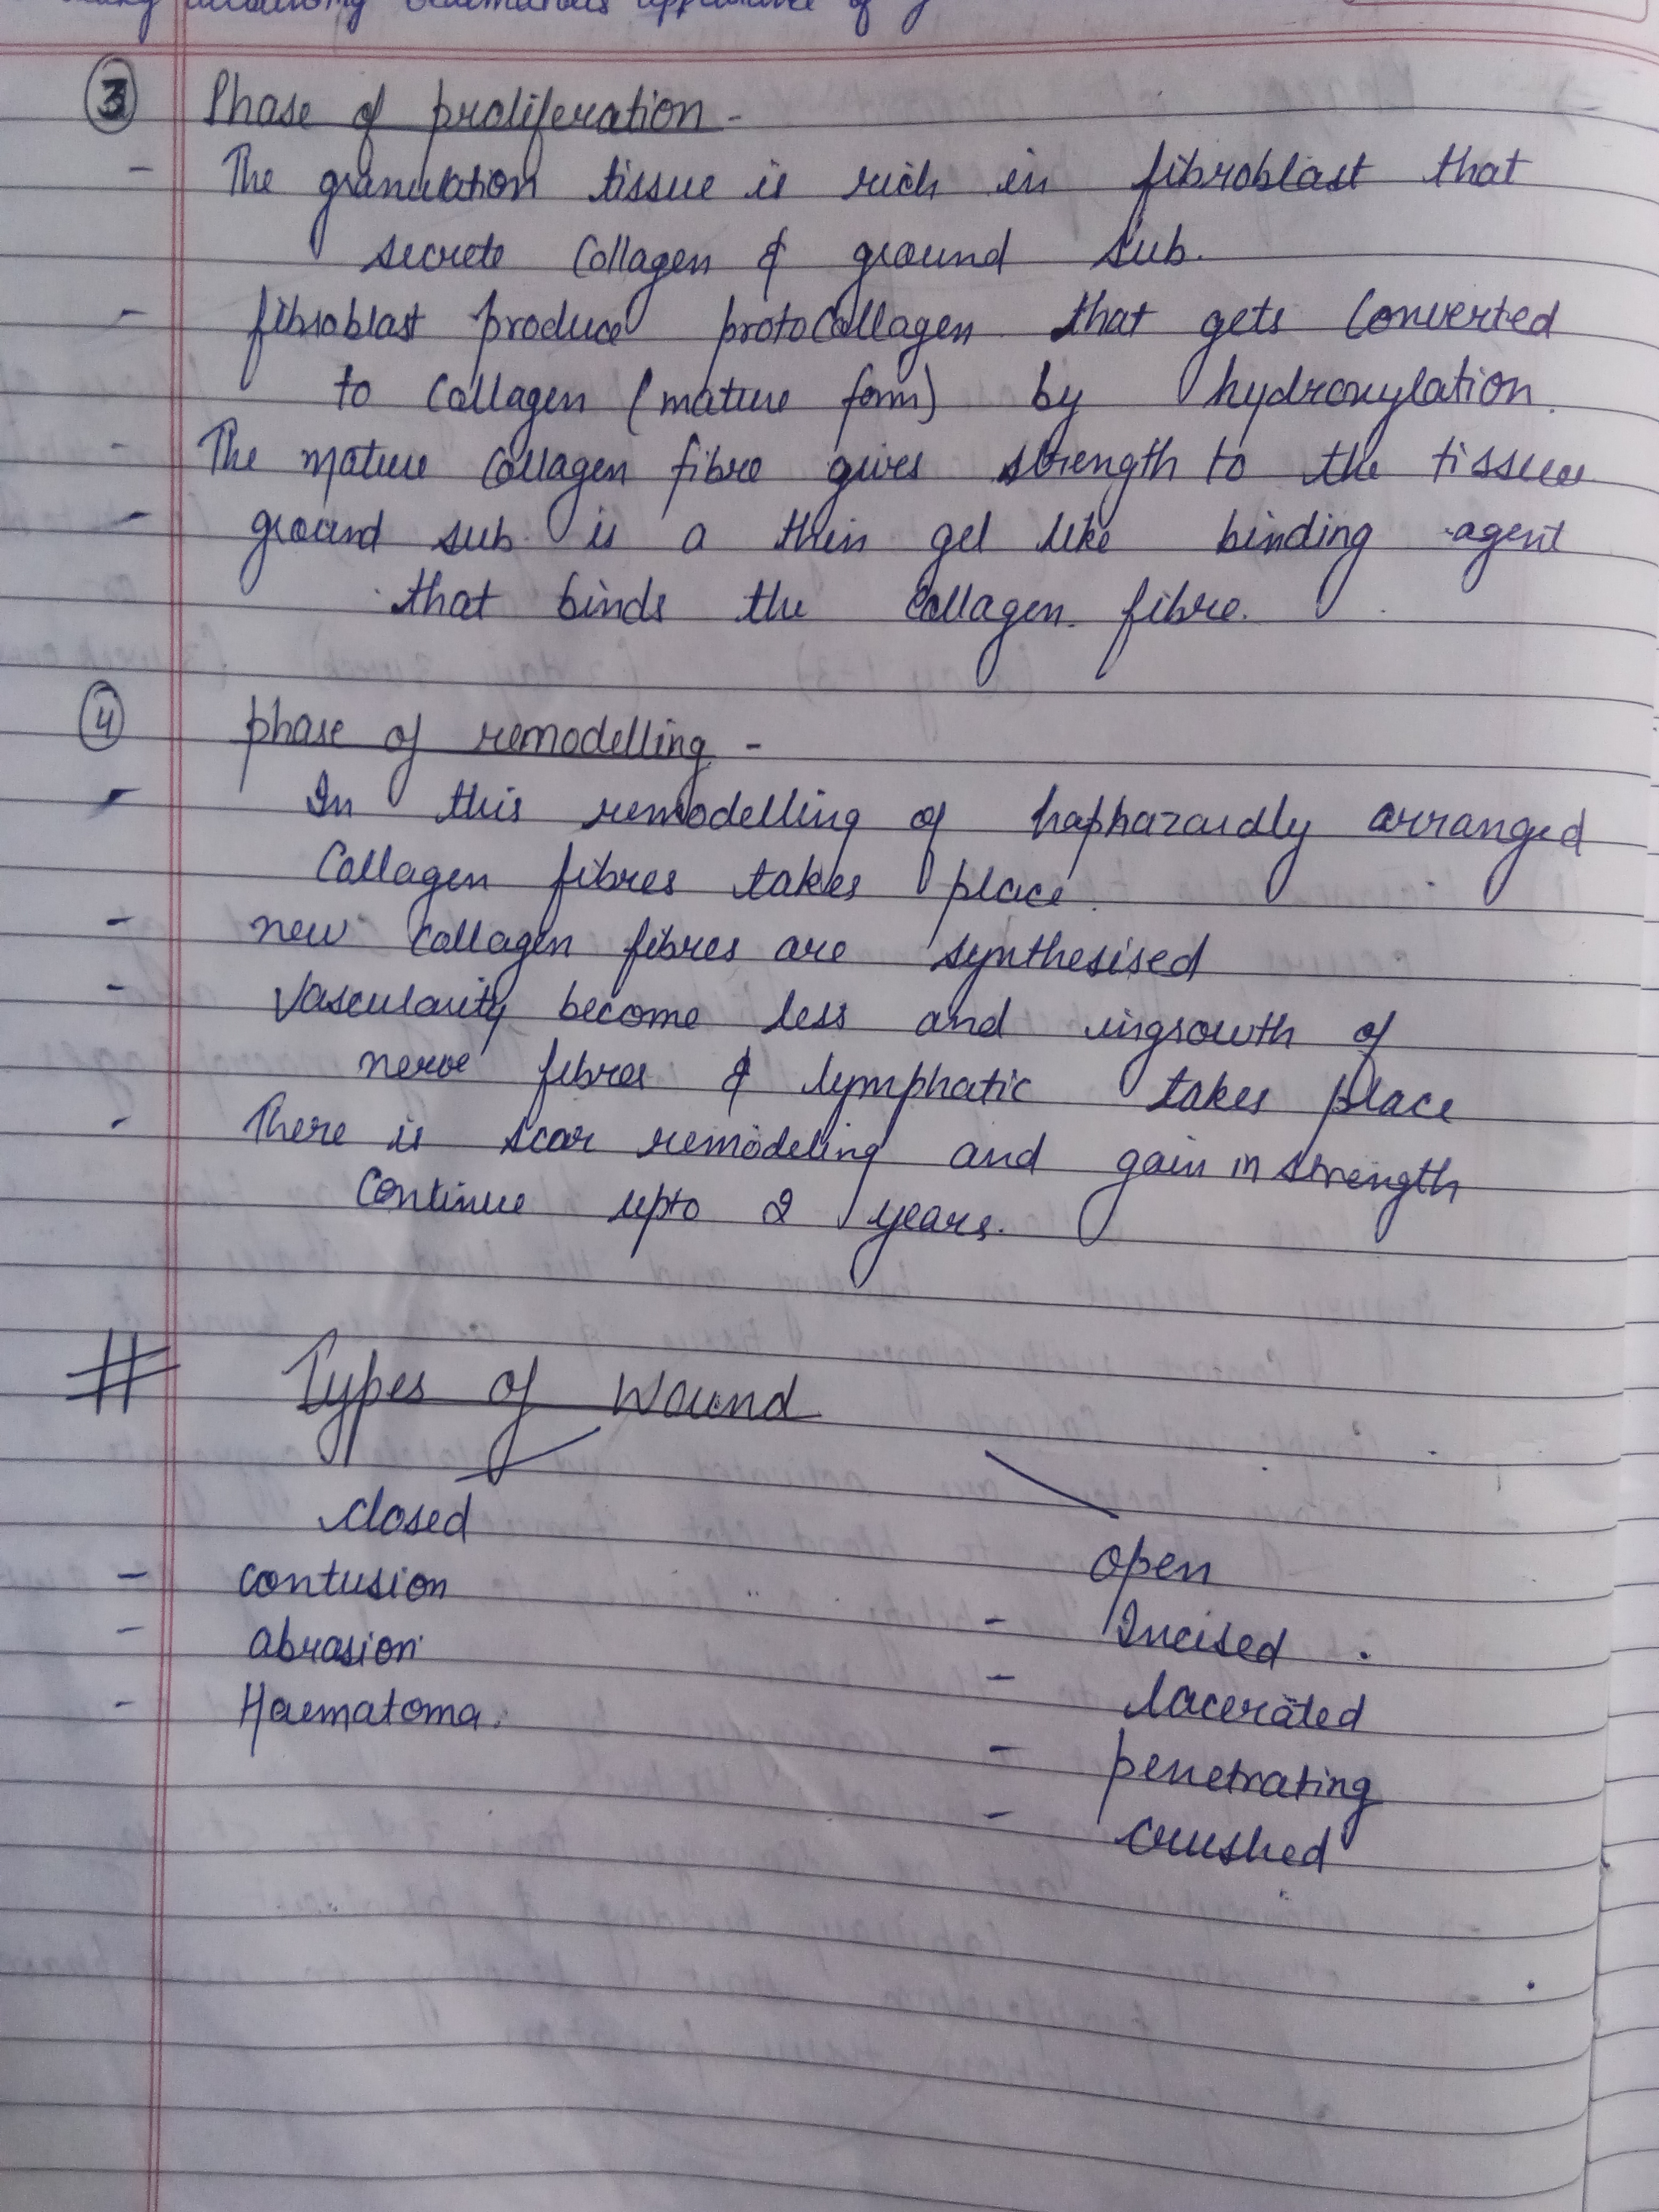 appearance of
③ Phase of proliferation -
- The granulation tissue is rich in fibroblast that
secrete collagen & ground sub.
- fibroblast produce protocollagen that gets converted
to collagen (mature form) by hydroxylation.
- The mature collagen fibre gives strength to the tissue
- ground sub is a thin gel like binding agent
that binds the collagen fibre.
④ phase of remodelling -
- In this remodelling of haphazardly arranged
collagen fibres takes place.
- new collagen fibres are synthesised
- Vascularity become less and ingrowth of
nerve fibres & lymphatic takes place
- There is scar remodeling and gain in strength
continue upto 2 years.
# Types of Wound
closed
open
- contusion
- Incised
- abrasion
- lacerated
- Haematoma.
- penetrating
- crushed